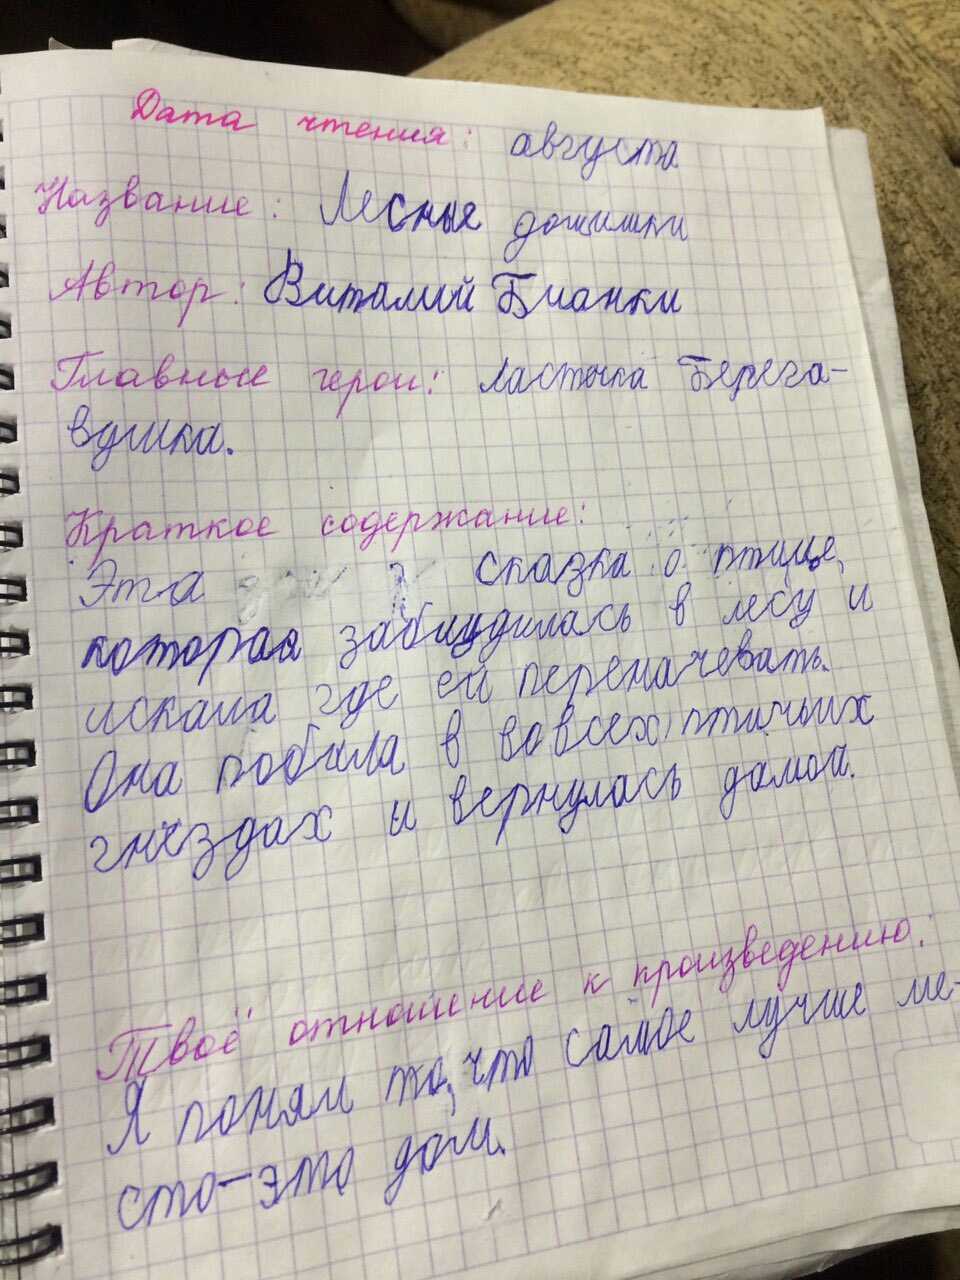 Дата чтения: августа
Название: Лесные домишки
Автор: Виталий Бианки
Главные герои: ласточка Берега-
вушка.
Краткое содержание:
Эта сказка о птице,
которая заблудилась в лесу и
искала где ей переначевать.
Она побыла в вовсех птичьих
гнёздах и вернулась дамой.
Твоё отношение к произведению:
Я понял то, что самое лучше ме-
сто-это дом.